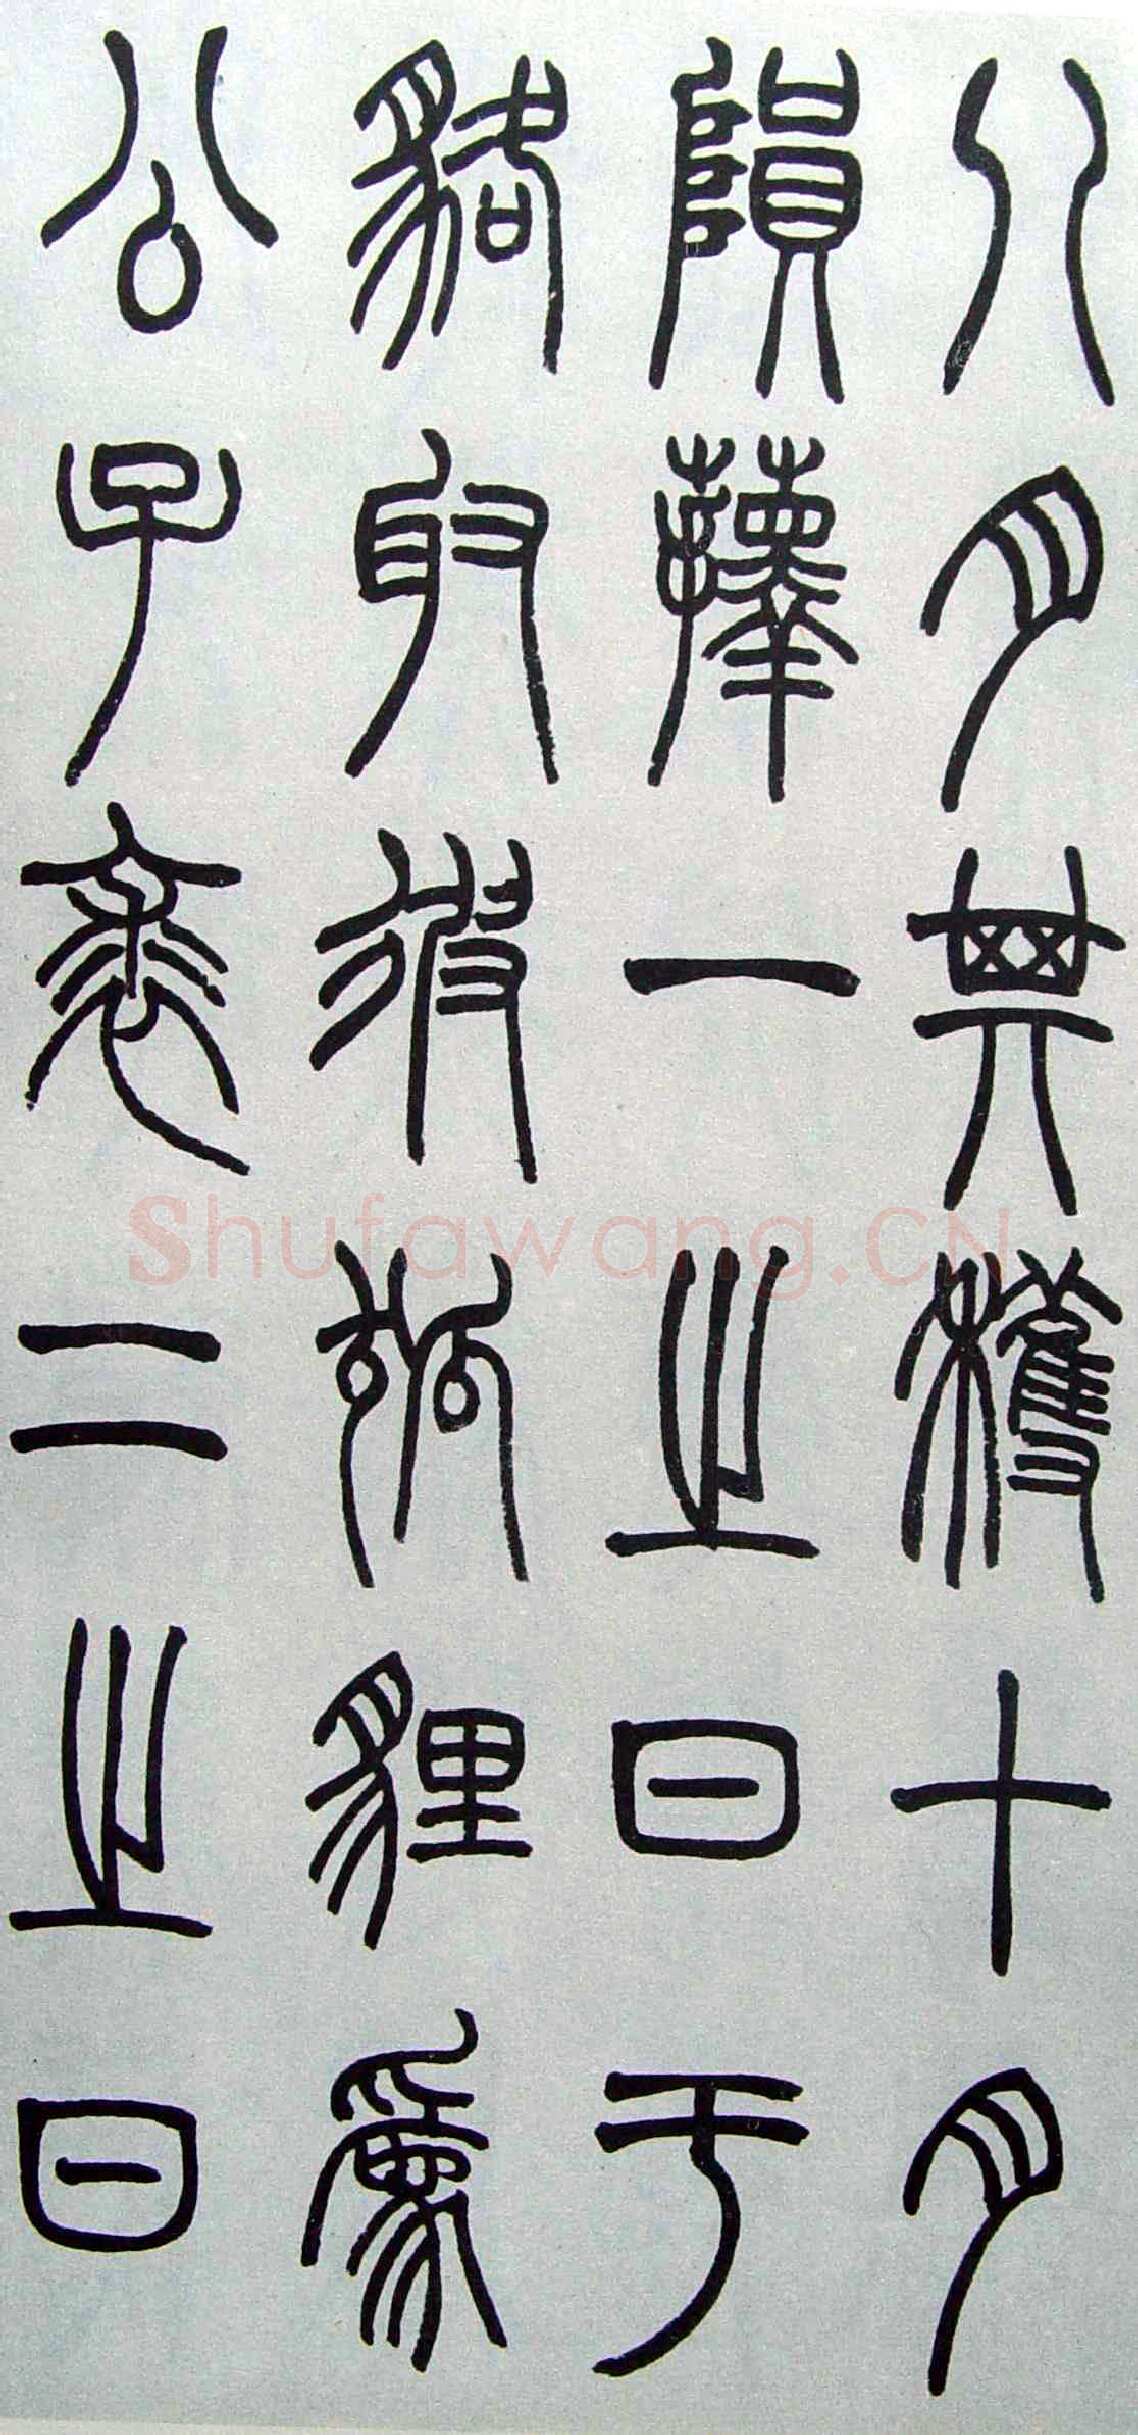 八月其穫十月
隕蘀一之日于
貉取彼狐貍為
公子裘二之日
Shufawang.CN